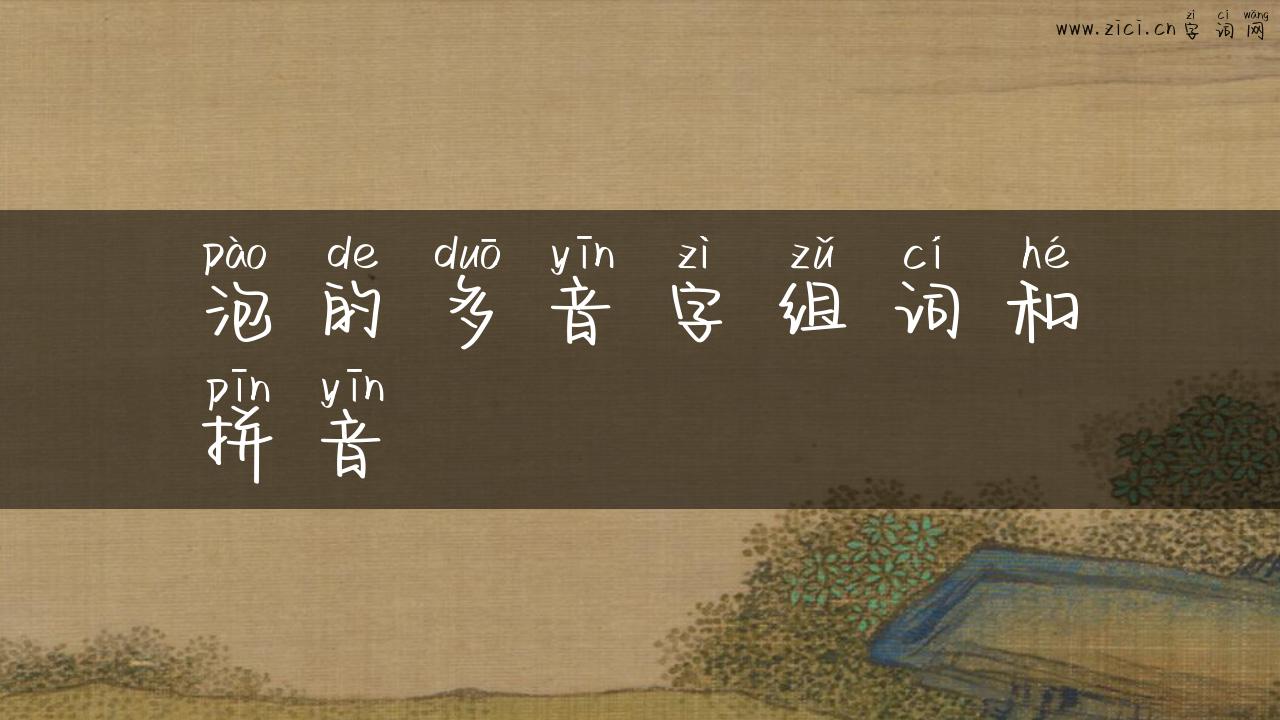 zì cí wǎng
www.zici.cn 字 词 网
pào de duō yīn zì zǔ cí hé
泡 的 多 音 字 组 词 和
pīn yīn
拼 音